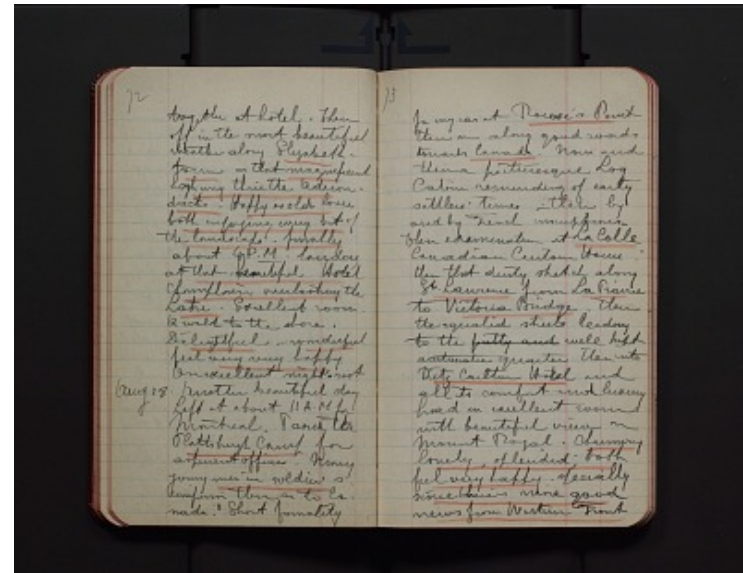 72
together at hotel. Then
off in the most beautiful
weather along Elizabeth-
town in that magnificent
highway thru the Adiron-
dacks. Happy as old
both enjoying every bit of
the landscape. finally
about 6 P.M.
at that beautiful Hotel
Champlain overlooking the
Lake. Excellent room.
& walk to the shore.
Delightful - wonderful
feel very very happy
An excellent night's rest
Aug 28 Another beautiful day
Left at about 11 A.M. for
Montreal. Passed the
Plattsburgh Camp for
officers. Many
young men in soldier's
uniform then on to Ca-
nada. Short formality
73
for my car at Rouse's Point
then on along good roads
towards Canada. Now and
then a picturesque Log
Cabin reminding of early
settlers times - then by
and by French
then examination at La Colle
Canadian Custom House
then that dusty stretch along
St Lawrence from La Prairie
to Victoria Bridge. Then
the squalid streets leading
to the pretty and well kept
quarter then into
Ritz Carlton Hotel and
all its comfort and luxury
in excellent room
with beautiful view on
Mount Royal. Charming
lovely, splendid. both
feel very happy. specially
since there is more good
news from Western Front